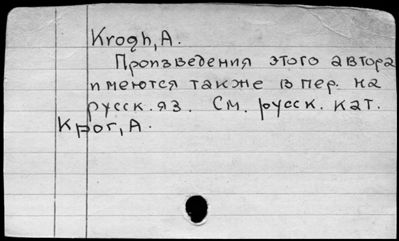 Krogh, A.
Произведения этого автора
имеются также в пер. на
русск. яз. См. русск. кат.
Крог, А.